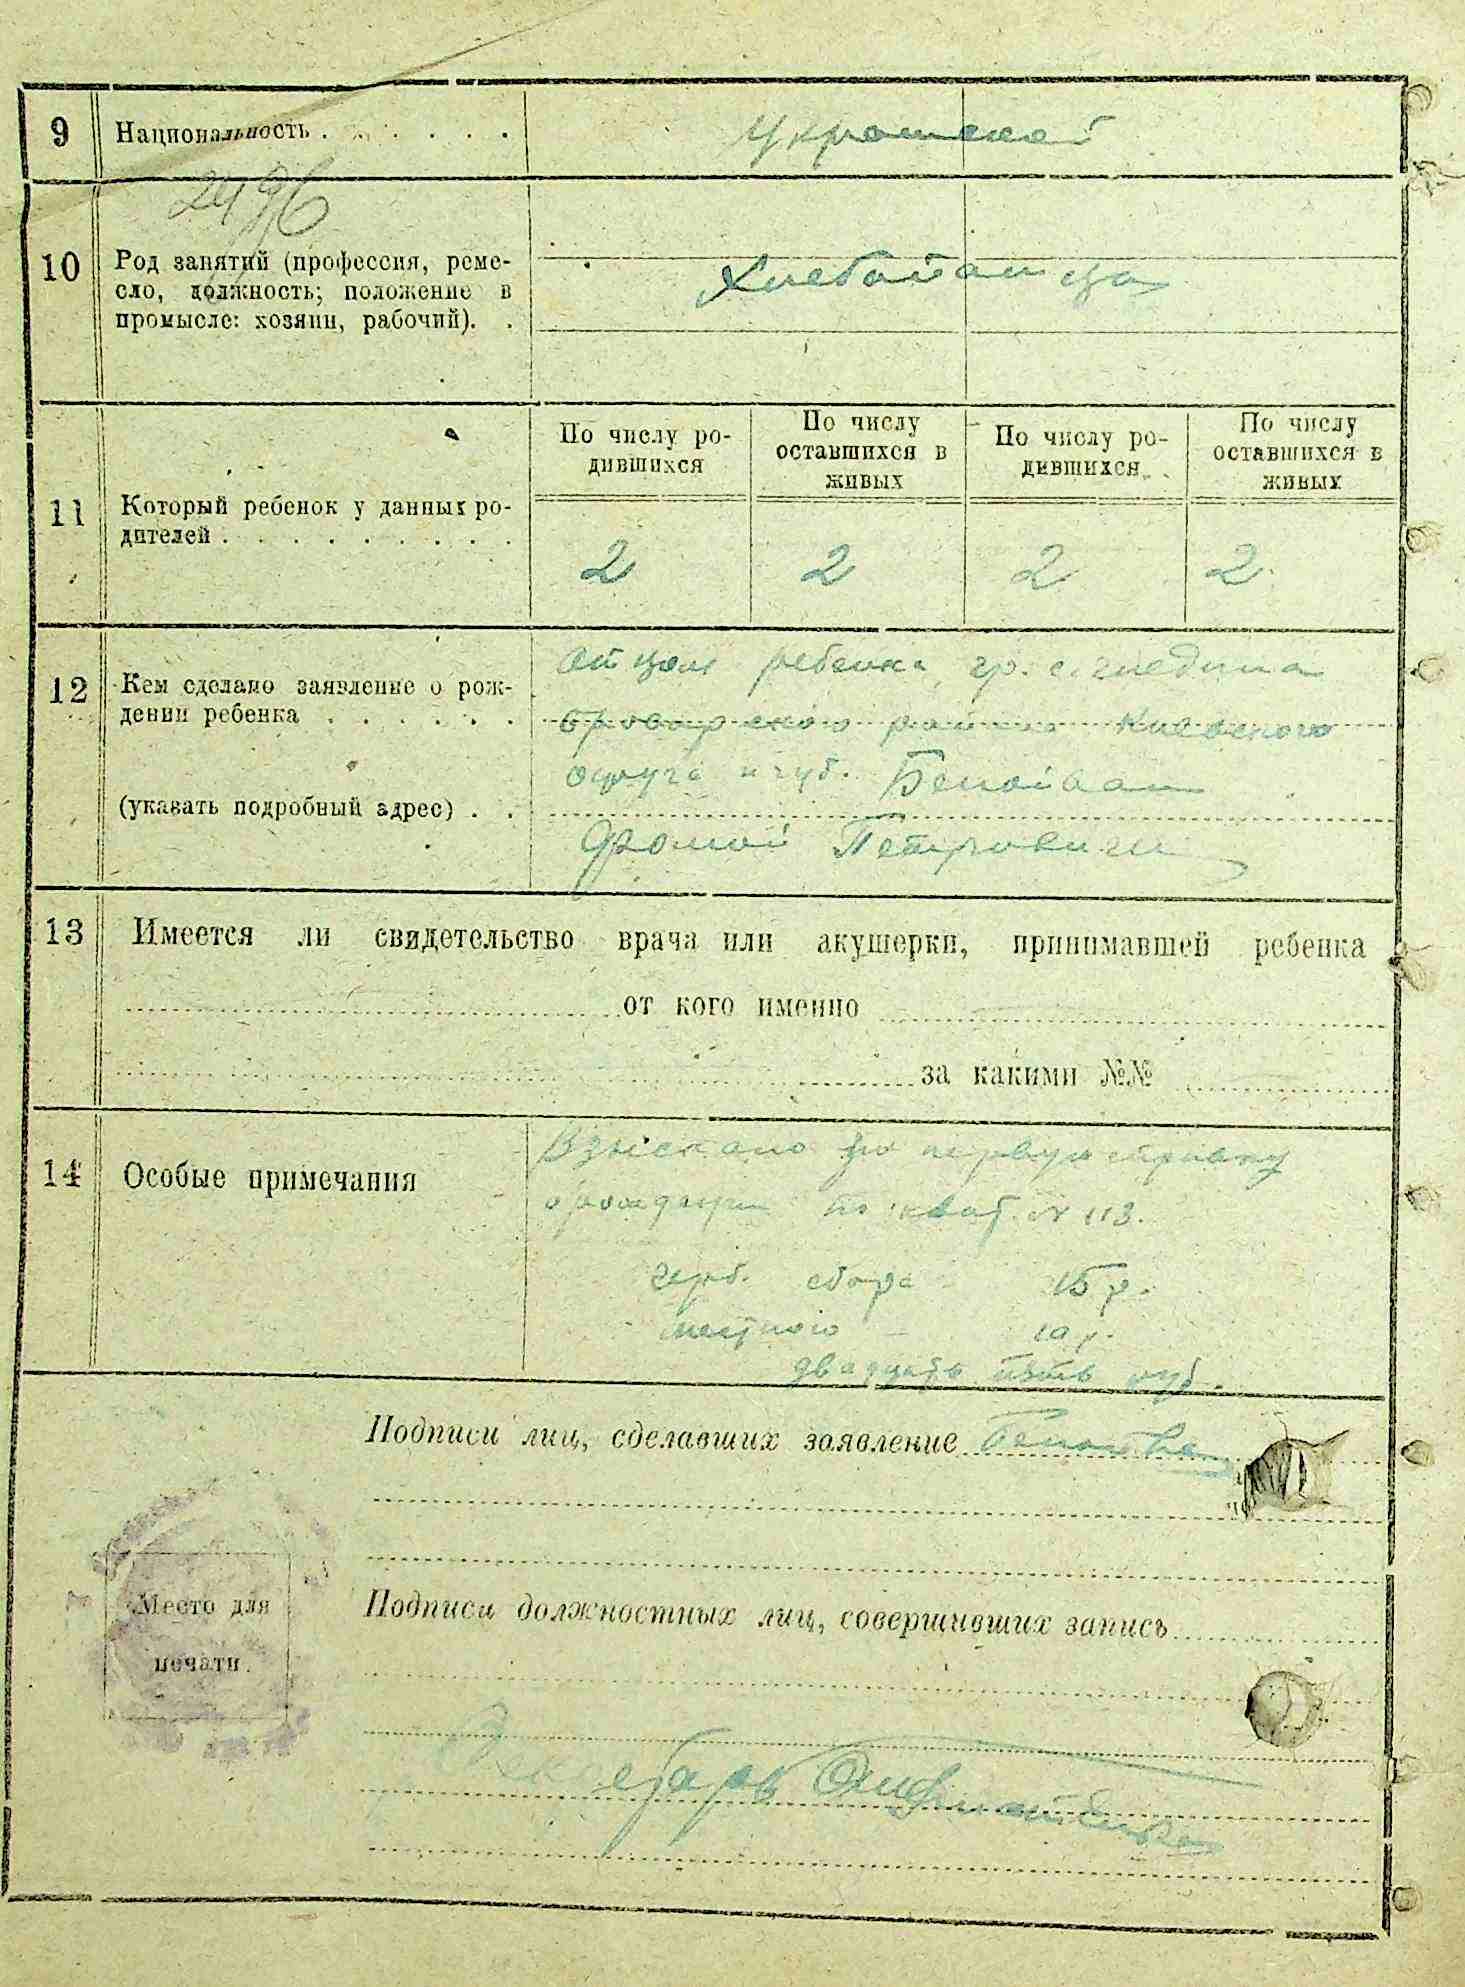 9 Национальность . . . . . . .
2496
10 Род занятий (профессия, реме-
сло, должность; положение в
промысле: хозяин, рабочий). .
По числу ро-
дившихся
По числу
оставшихся в
живых
По числу ро-
дившихся
По числу
оставшихся в
живых
11 Который ребенок у данных ро-
дителей . . . . . . . . .
2 2 2 2
12 Кем сделано заявление о рож-
дении ребенка . . . . . .
(указать подробный адрес) . .
ребенка гр. с.
района Киевского
округа и губ.
Фомой Петровичем
13 Имеется ли свидетельство врача или акушерки, принимавшей ребенка
от кого именно
за какими №№
14 Особые примечания
Взыскано по первую
по квит. № 113.
герб. сбора 15 р.
местного – 10 р.
двадцать пять руб.
Подписи лиц, сделавших заявление
Место для
печати.
Подписи должностных лиц, совершивших запись
Секретарь